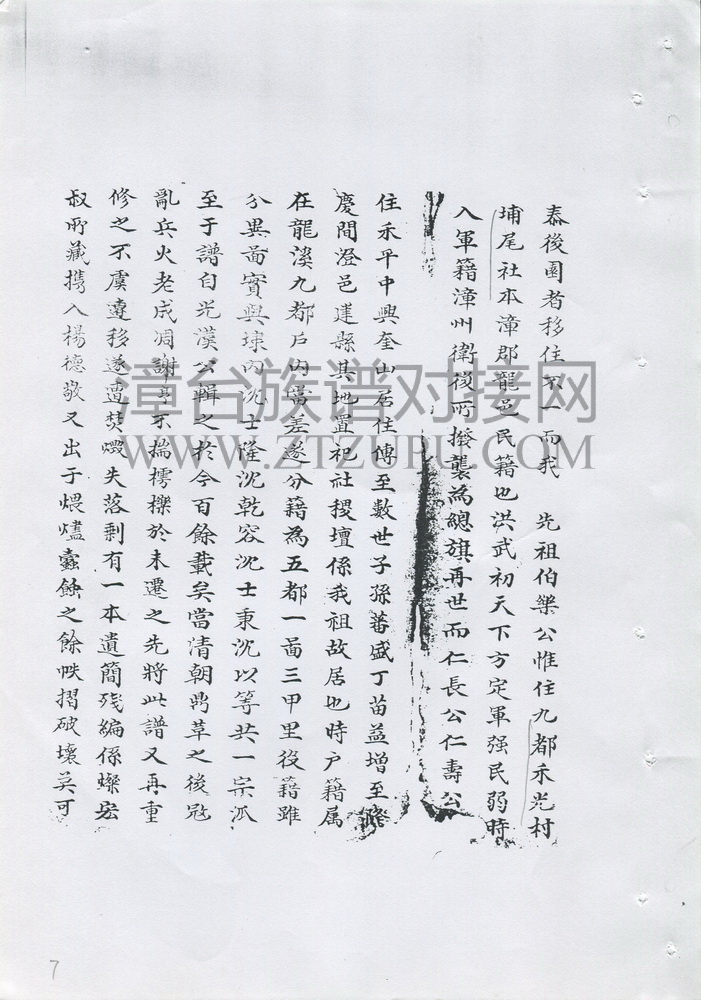 泰後園者移住不一而我　先祖伯樂公惟住九都禾光村
埔尾社本漳郡龍邑民籍也洪武初天下方定軍强民弱時
入軍籍漳州衛後所撥襲為總旗再世而仁長公仁壽公
住永平中興奎山居住傳至數世子孫蕃盛丁苗益增至隆
慶間澄邑建縣其地置祀社稷壇係我祖故居也時户籍属
在龍溪九都户內當差遂分籍為五都一啚三甲里役籍雖
分異啚實與埭內沈士隆沈乾容沈士秉沈以等共一宗派
至于譜自光漢公輯之於今百餘載矣當清朝鼎革之後冦
亂兵火老成凋謝不揣樗櫟於未遷之先將此譜又再重
修之不虞遷移遂遭焚燬失落剩有一本遺簡殘編係燦宏
叔所藏携入楊德敬又出于煨燼蠹蝕之餘帙摺破壞莫可
漳台族谱对接网
WWW.ZTZUPU.COM
7